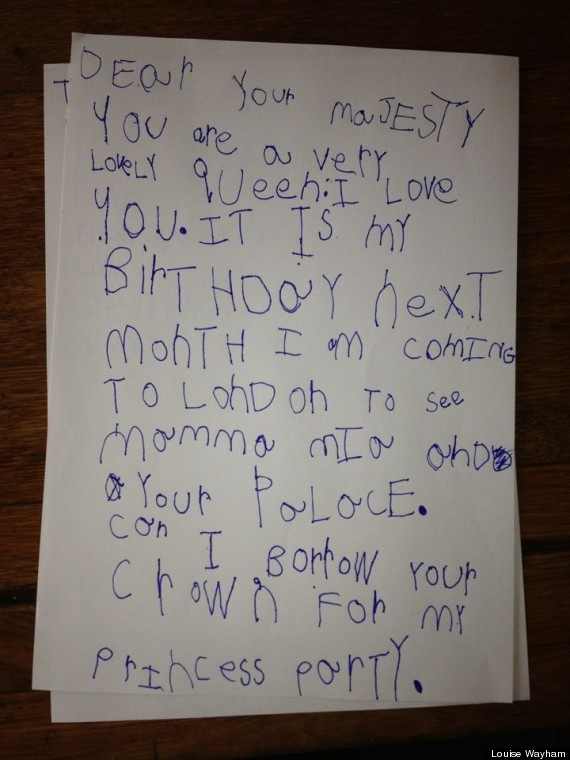 DEar Your maJESTY
You are a very
LOVELY QUeen: I LOVE
YOU. IT IS MY
BirTHDaY nexT
monTH I am comING
TO LONDON TO see
mamma mIa anD
Your PaLaCE.
can I Borrow Your
Crown For MY
PrINcess ParTY.
T
Louise Wayham